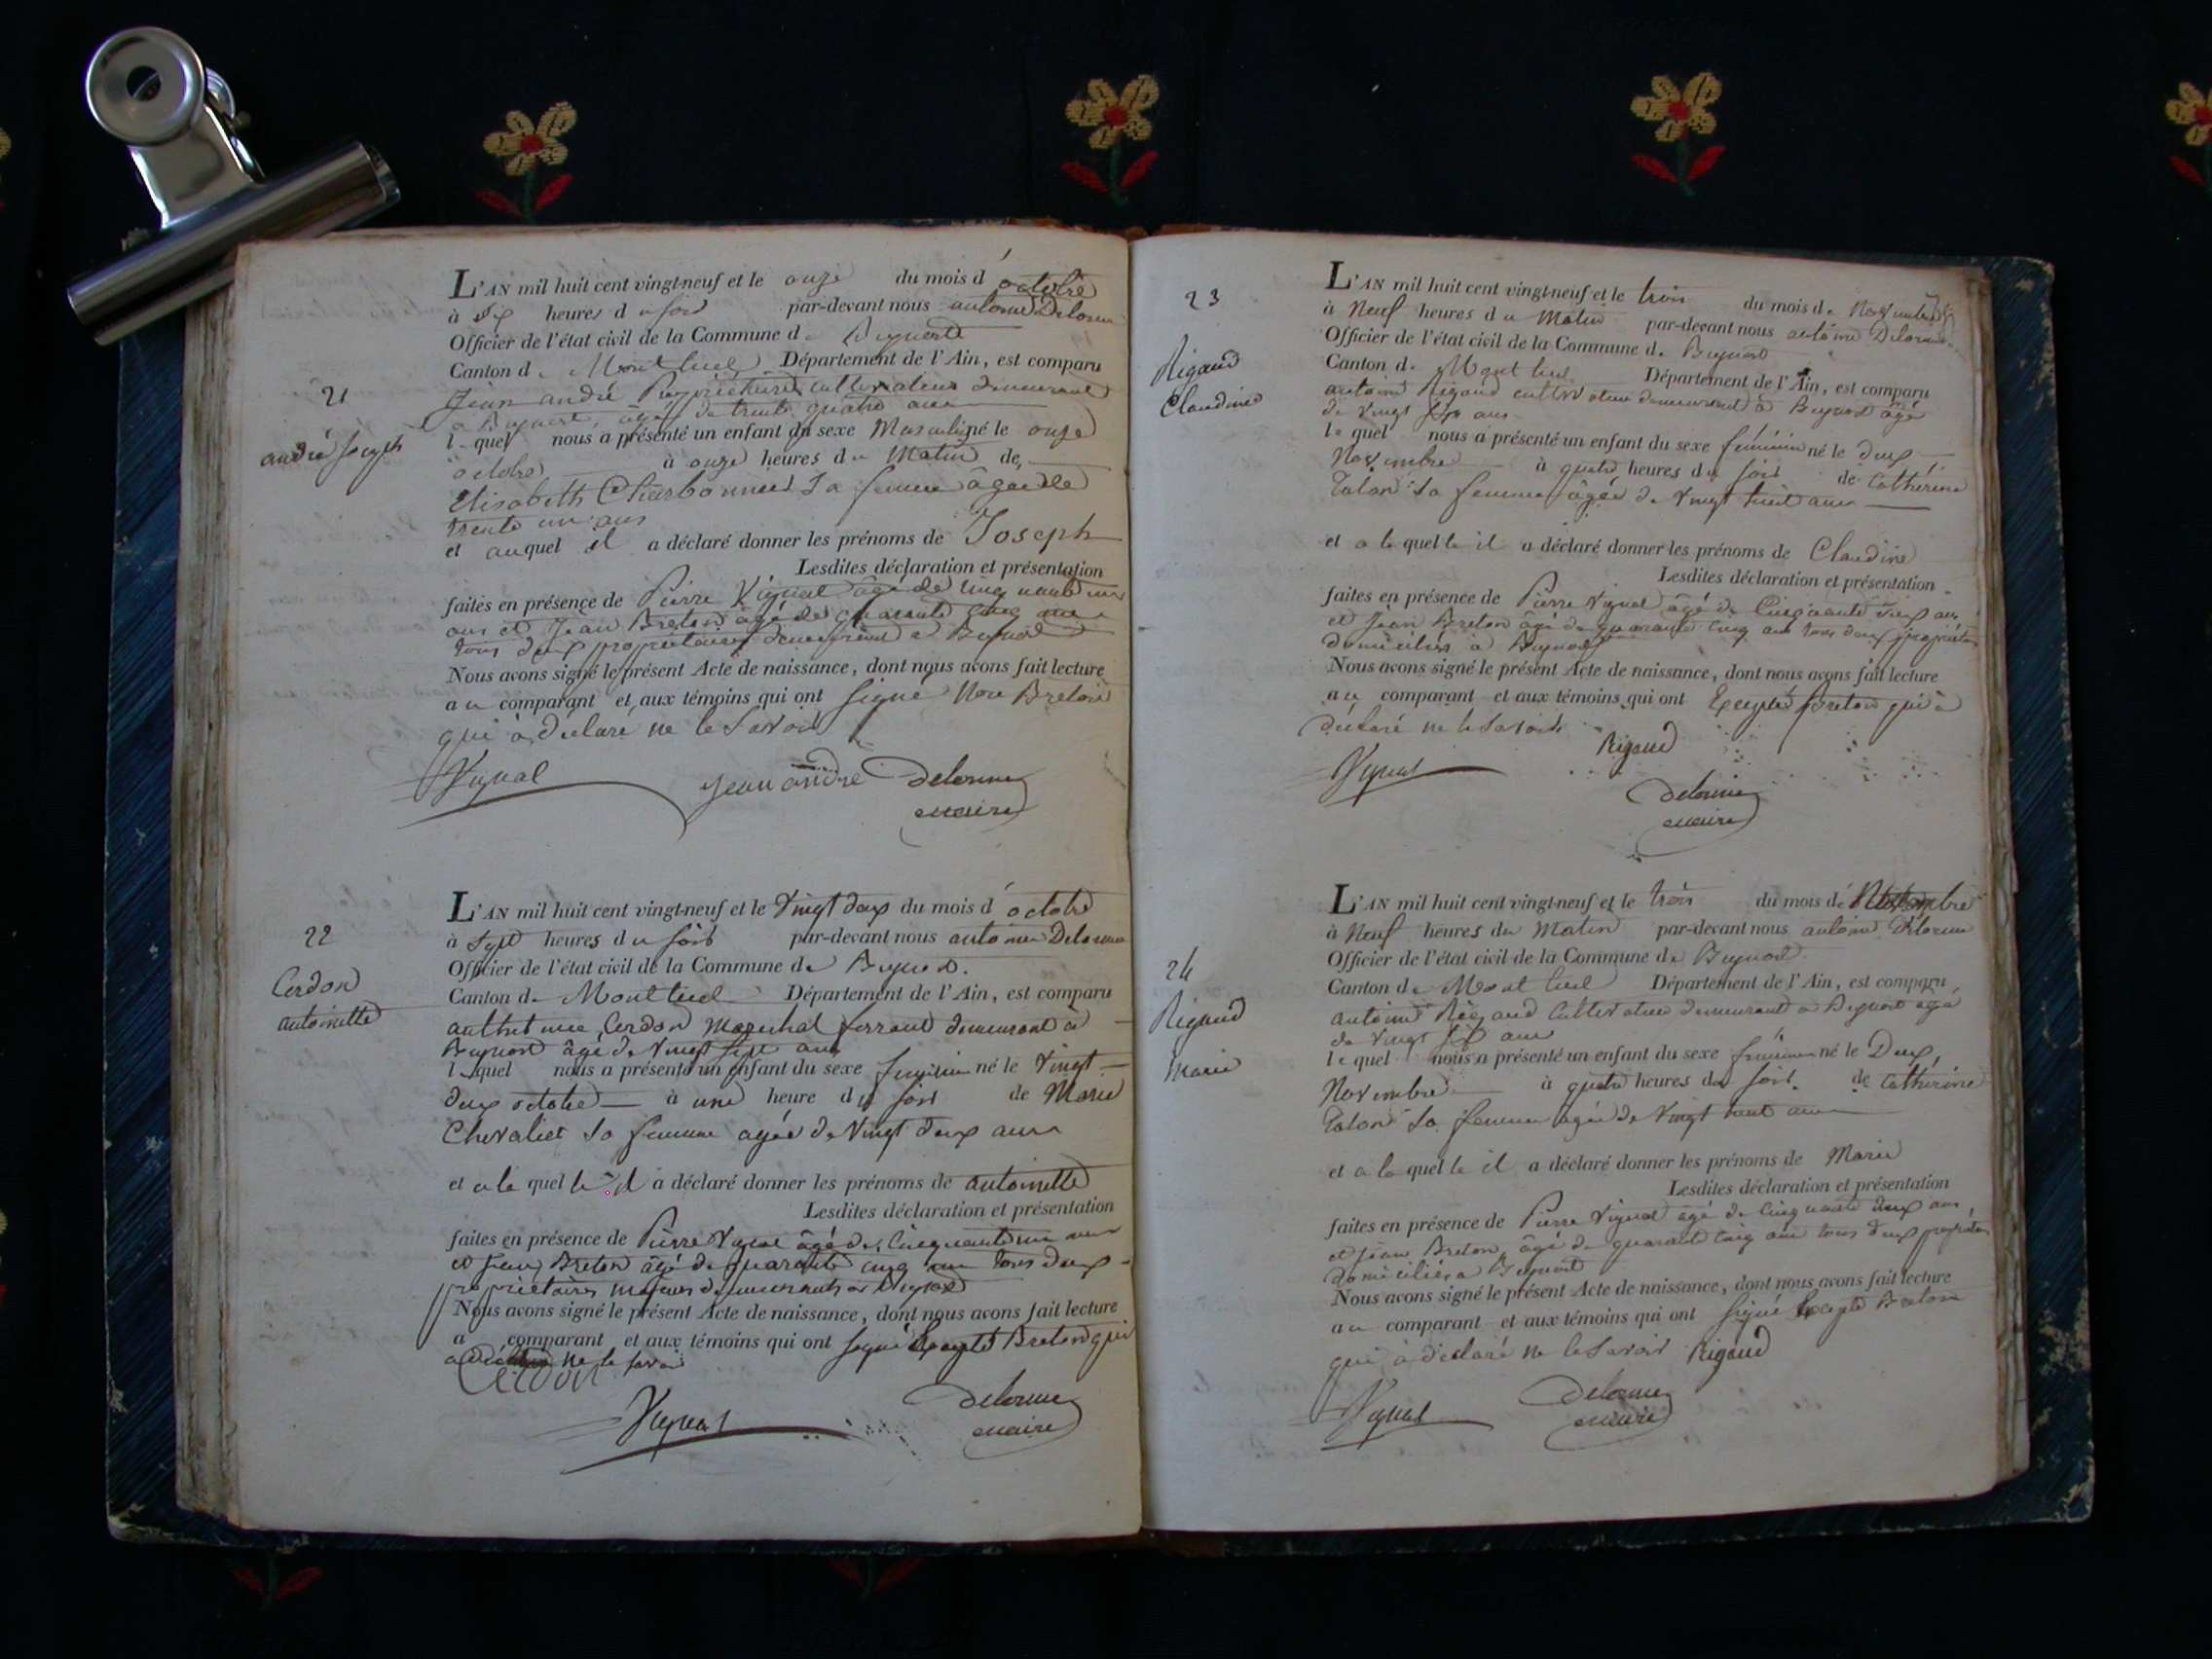 L'AN mil huit cent vingt-neuf et le onze du mois d'octobre
à six heures du soir par-devant nous antoine Delorme
Officier de l'état civil de la Commune de
Canton de Montluel Département de l'Ain, est comparu
21
Jean andré Propriétaire cultivateur demeurant
à âgé de trente quatre ans
andré Joseph
lequel nous a présenté un enfant du sexe Masculin né le onze
octobre à onze heures du Matin de
Elisabeth Charbonnet Sa femme âgée de
trente un ans
et auquel il a déclaré donner les prénoms de Joseph
Lesdites déclaration et présentation
faites en présence de Pierre Vignal âgé de cinquante un
ans et Jean Breton âgé de quarante cinq ans
tous deux propriétaires demeurant à
Nous avons signé le présent Acte de naissance, dont nous avons fait lecture
au comparant et aux témoins qui ont signé Non Breton
qui à déclaré ne le Savoir
Vignal Jean andré Delorme
maire
L'AN mil huit cent vingt-neuf et le vingt deux du mois d'octobre
22
à sept heures du soir par-devant nous antoine Delorme
Officier de l'état civil de la Commune de
Cerdon
Canton de Montluel Département de l'Ain, est comparu
antoinette
Cerdon Marechal ferrant demeurant à
âgé de vingt sept ans
lequel nous a présenté un enfant du sexe feminin né le vingt
deux octobre à une heure du soir de Marie
Chevalier Sa femme agée de vingt deux ans
et a la quelle il a déclaré donner les prénoms de antoinette
Lesdites déclaration et présentation
faites en présence de Pierre Vignal âgé de Cinquante un ans
et Jean Breton âgé de quarante cinq ans tous deux
propriétaires majeurs demeurants à
Nous avons signé le présent Acte de naissance, dont nous avons fait lecture
a comparant et aux témoins qui ont signé Excepté Breton qui
a Déclaré ne le savoir
Cerdon
Vignal Delorme
maire
L'AN mil huit cent vingt-neuf et le trois du mois de Novembre
23
à Neuf heures du Matin par-devant nous antoine Delorme
Officier de l'état civil de la Commune de
Rigaud
Canton de Montluel Département de l'Ain, est comparu
Claudine
antoine Rigaud cultivateur demeurant à âgé
de vingt six ans
lequel nous a présenté un enfant du sexe féminin né le deux
Novembre à quatre heures du soir de Catherine
Talon Sa femme âgée de vingt huit ans
et a la quelle il a déclaré donner les prénoms de Claudine
Lesdites déclaration et présentation
faites en présence de Pierre Vignal âgé de Cinquante deux ans
et Jean Breton âgé de quarante cinq ans tous deux propriétaires
domiciliés à
Nous avons signé le présent Acte de naissance, dont nous avons fait lecture
au comparant et aux témoins qui ont Excepté Breton qui à
déclaré ne le Savoir
Rigaud
Vignal
Delorme
maire
L'AN mil huit cent vingt-neuf et le trois du mois de Novembre
à Neuf heures du Matin par-devant nous antoine Delorme
Officier de l'état civil de la Commune de
24
Canton de Montluel Département de l'Ain, est comparu
Rigaud
antoine Rigaud Cultivateur demeurant à agé
de vingt six ans
Marie
lequel nous a présenté un enfant du sexe féminin né le Deux
Novembre à quatre heures du soir de Cathérine
Talon Sa femme agée de vingt huit ans
et a la quelle il a déclaré donner les prénoms de Marie
Lesdites déclaration et présentation
faites en présence de Pierre Vignal agé de Cinquante deux ans
et Jean Breton âgé de quarante cinq ans tous deux propriétaires
domiciliés à
Nous avons signé le présent Acte de naissance, dont nous avons fait lecture
au comparant et aux témoins qui ont signé Excepté Breton
qui à déclaré ne le Savoir Rigaud
Vignal Delorme
maire